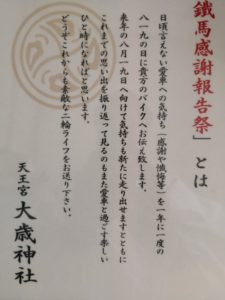 鐵馬感謝報告祭」とは
日頃言えない愛車への気持ち(感謝や懺悔等)を一年に一度の
八一九の日に貴方のバイクへお伝え致します。
来年の八月一九日へ向けて気持ちも新たに走り出せますとともに
これまでの思い出を振り返って見るのもまた愛車と過ごす楽しい
ひと時になればと思います。
どうぞこれからも素敵な二輪ライフをお送り下さい。
天王宮 大歳神社